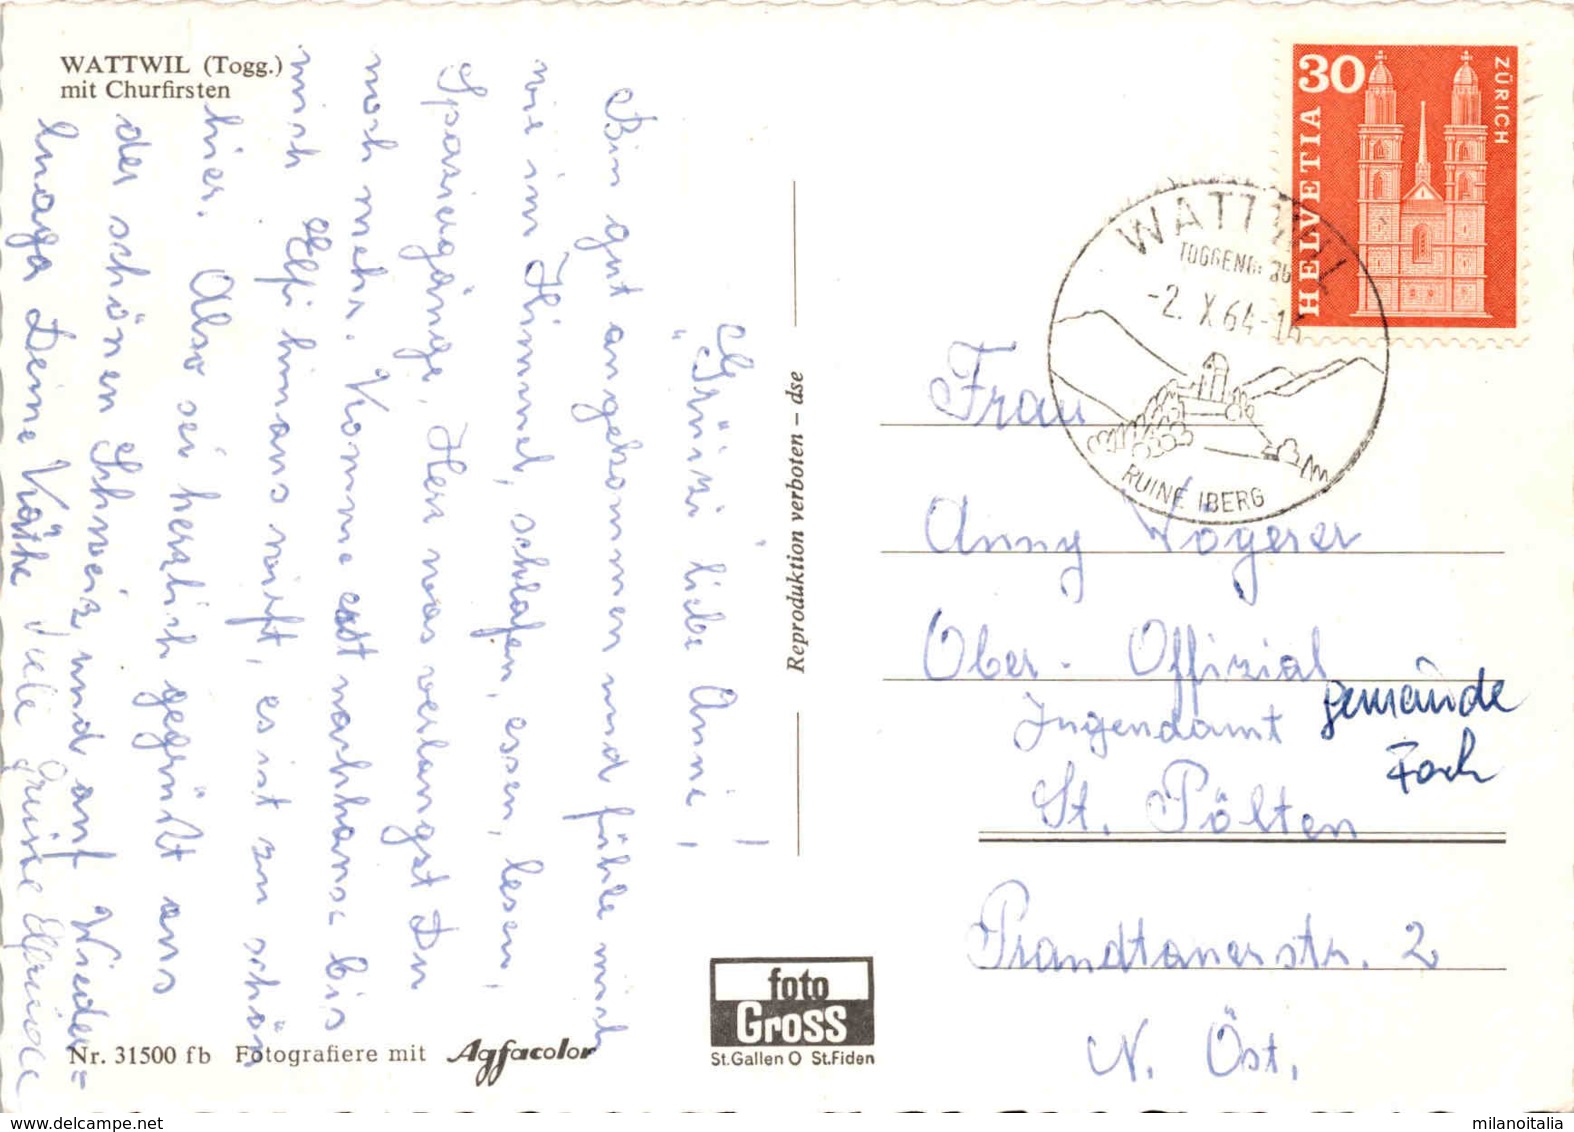 WATTWIL (Togg.)
mit Churfirsten
"Grüzi liebe Anni,"!
Bin gut angekommen und fühle mich
wie im Himmel, schlafen, essen, lesen,
Spaziergänge, Herz was verlangst Du
noch mehr. Komme erst nachhause bis
mich Elfi hinaus wirft, es ist zu schön
hier. Also sei herzlich gegrüßt aus
der schönen Schweiz, und auf Wieder-
Deine Käthe Viele Grüsse Elfriede
Nr. 31500 fb Fotografiere mit Agfacolor
Reproduktion verboten – dse
foto
Gross
St.Gallen O St.Fiden
30
HELVETIA
ZÜRICH
WATTWIL
TOGGENBURG
-2. X 64-16
RUINE IBERG
Frau
Anny Vogerer
Ober-Offizial
Jugendamt
Gemeinde
St. Pölten
Prandtauerstr. 2
N. Öst.
milanoitalia